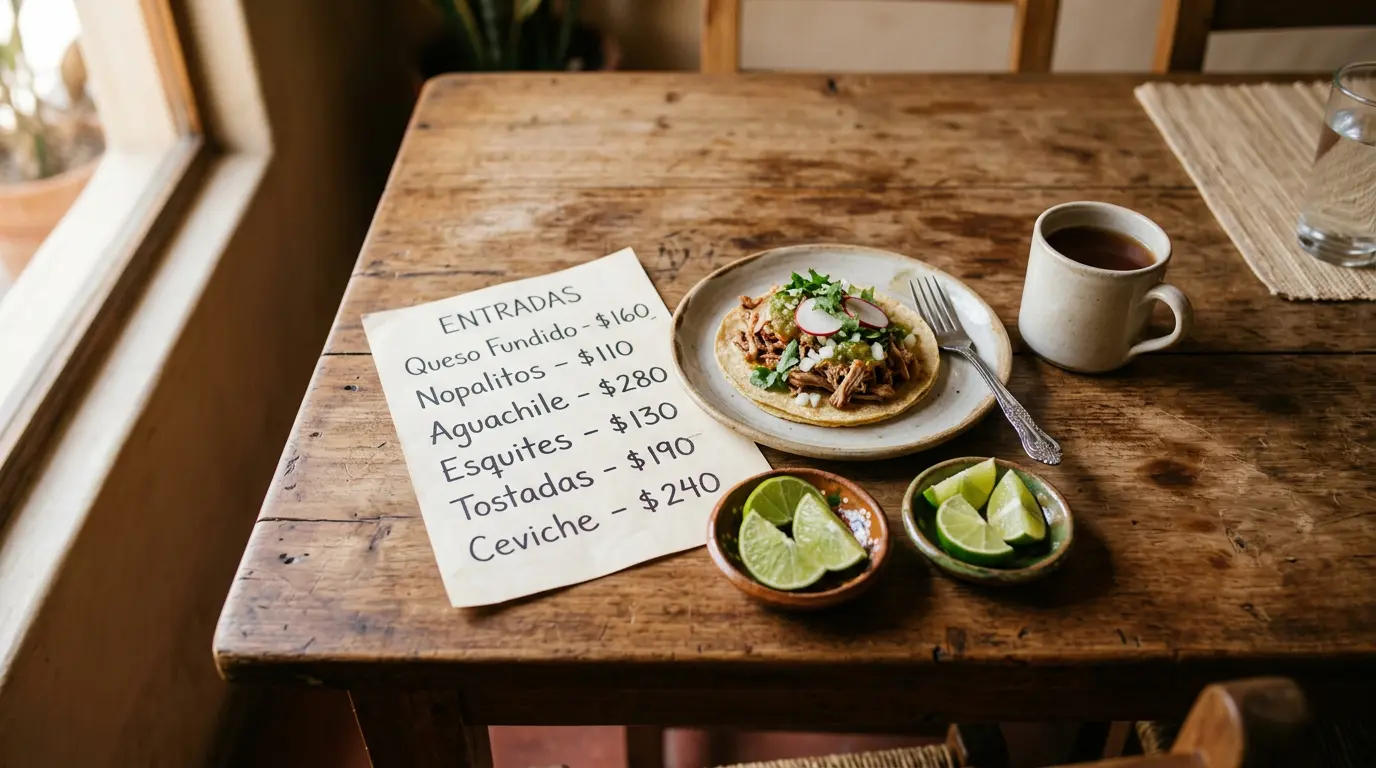 ENTRADAS
Queso Fundido - $160
Nopalitos - $110
Aguachile - $280
Esquites - $130
Tostadas - $190
Ceviche - $240